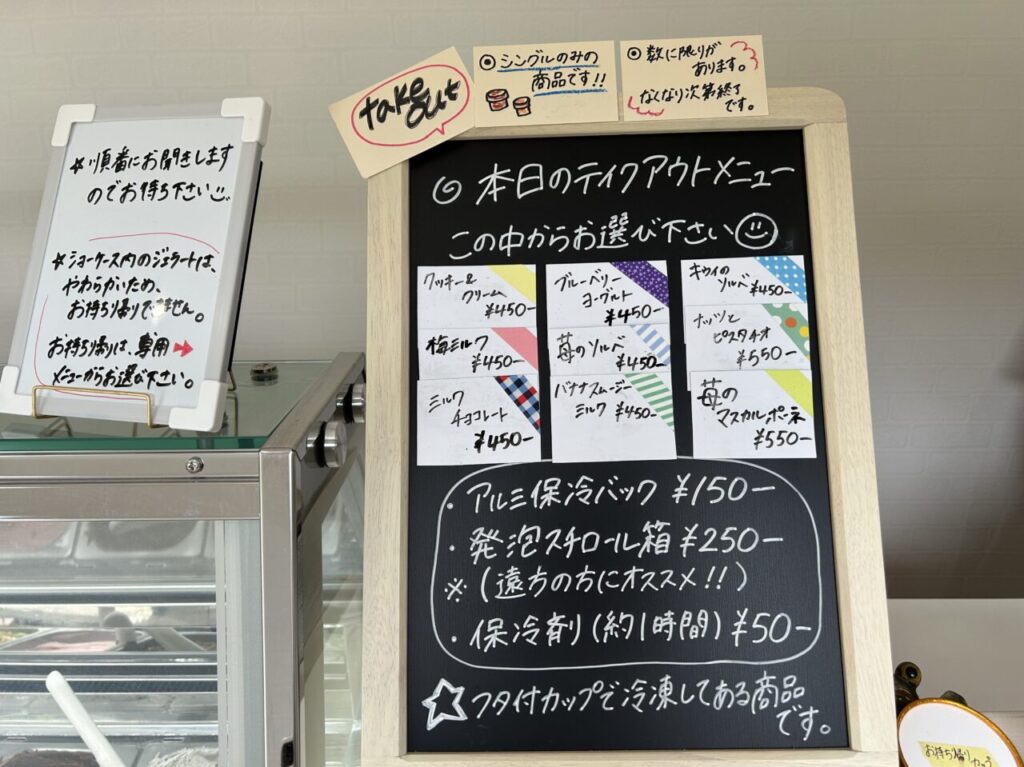 ★順番にお聞きします
のでお待ち下さい
★ショーケース内のジェラートは、
やわらかいため、
お持ち帰りできません。
お持ち帰りは、専用➡
メニューからお選び下さい。
take out
◎シングルのみの
商品です!!
◎数に限りが
あります。
なくなり次第終了
です。
◎本日のテイクアウトメニュー
この中からお選び下さい
クッキー&
クリーム
¥450-
ブルーベリー
ヨーグルト
¥450-
キウイの
ソルベ ¥450-
梅ミルク
¥450-
苺のソルベ
¥450-
ナッツと
ピスタチオ
¥550-
ミルク
チョコレート
¥450-
バナナスムージー
ミルク ¥450-
苺の
マスカルポーネ
¥550-
・アルミ保冷バック ¥150-
・発泡スチロール箱 ¥250-
※(遠方の方にオススメ!!)
・保冷剤(約1時間) ¥50-
☆フタ付カップで冷凍してある商品
です。
お持ち帰り